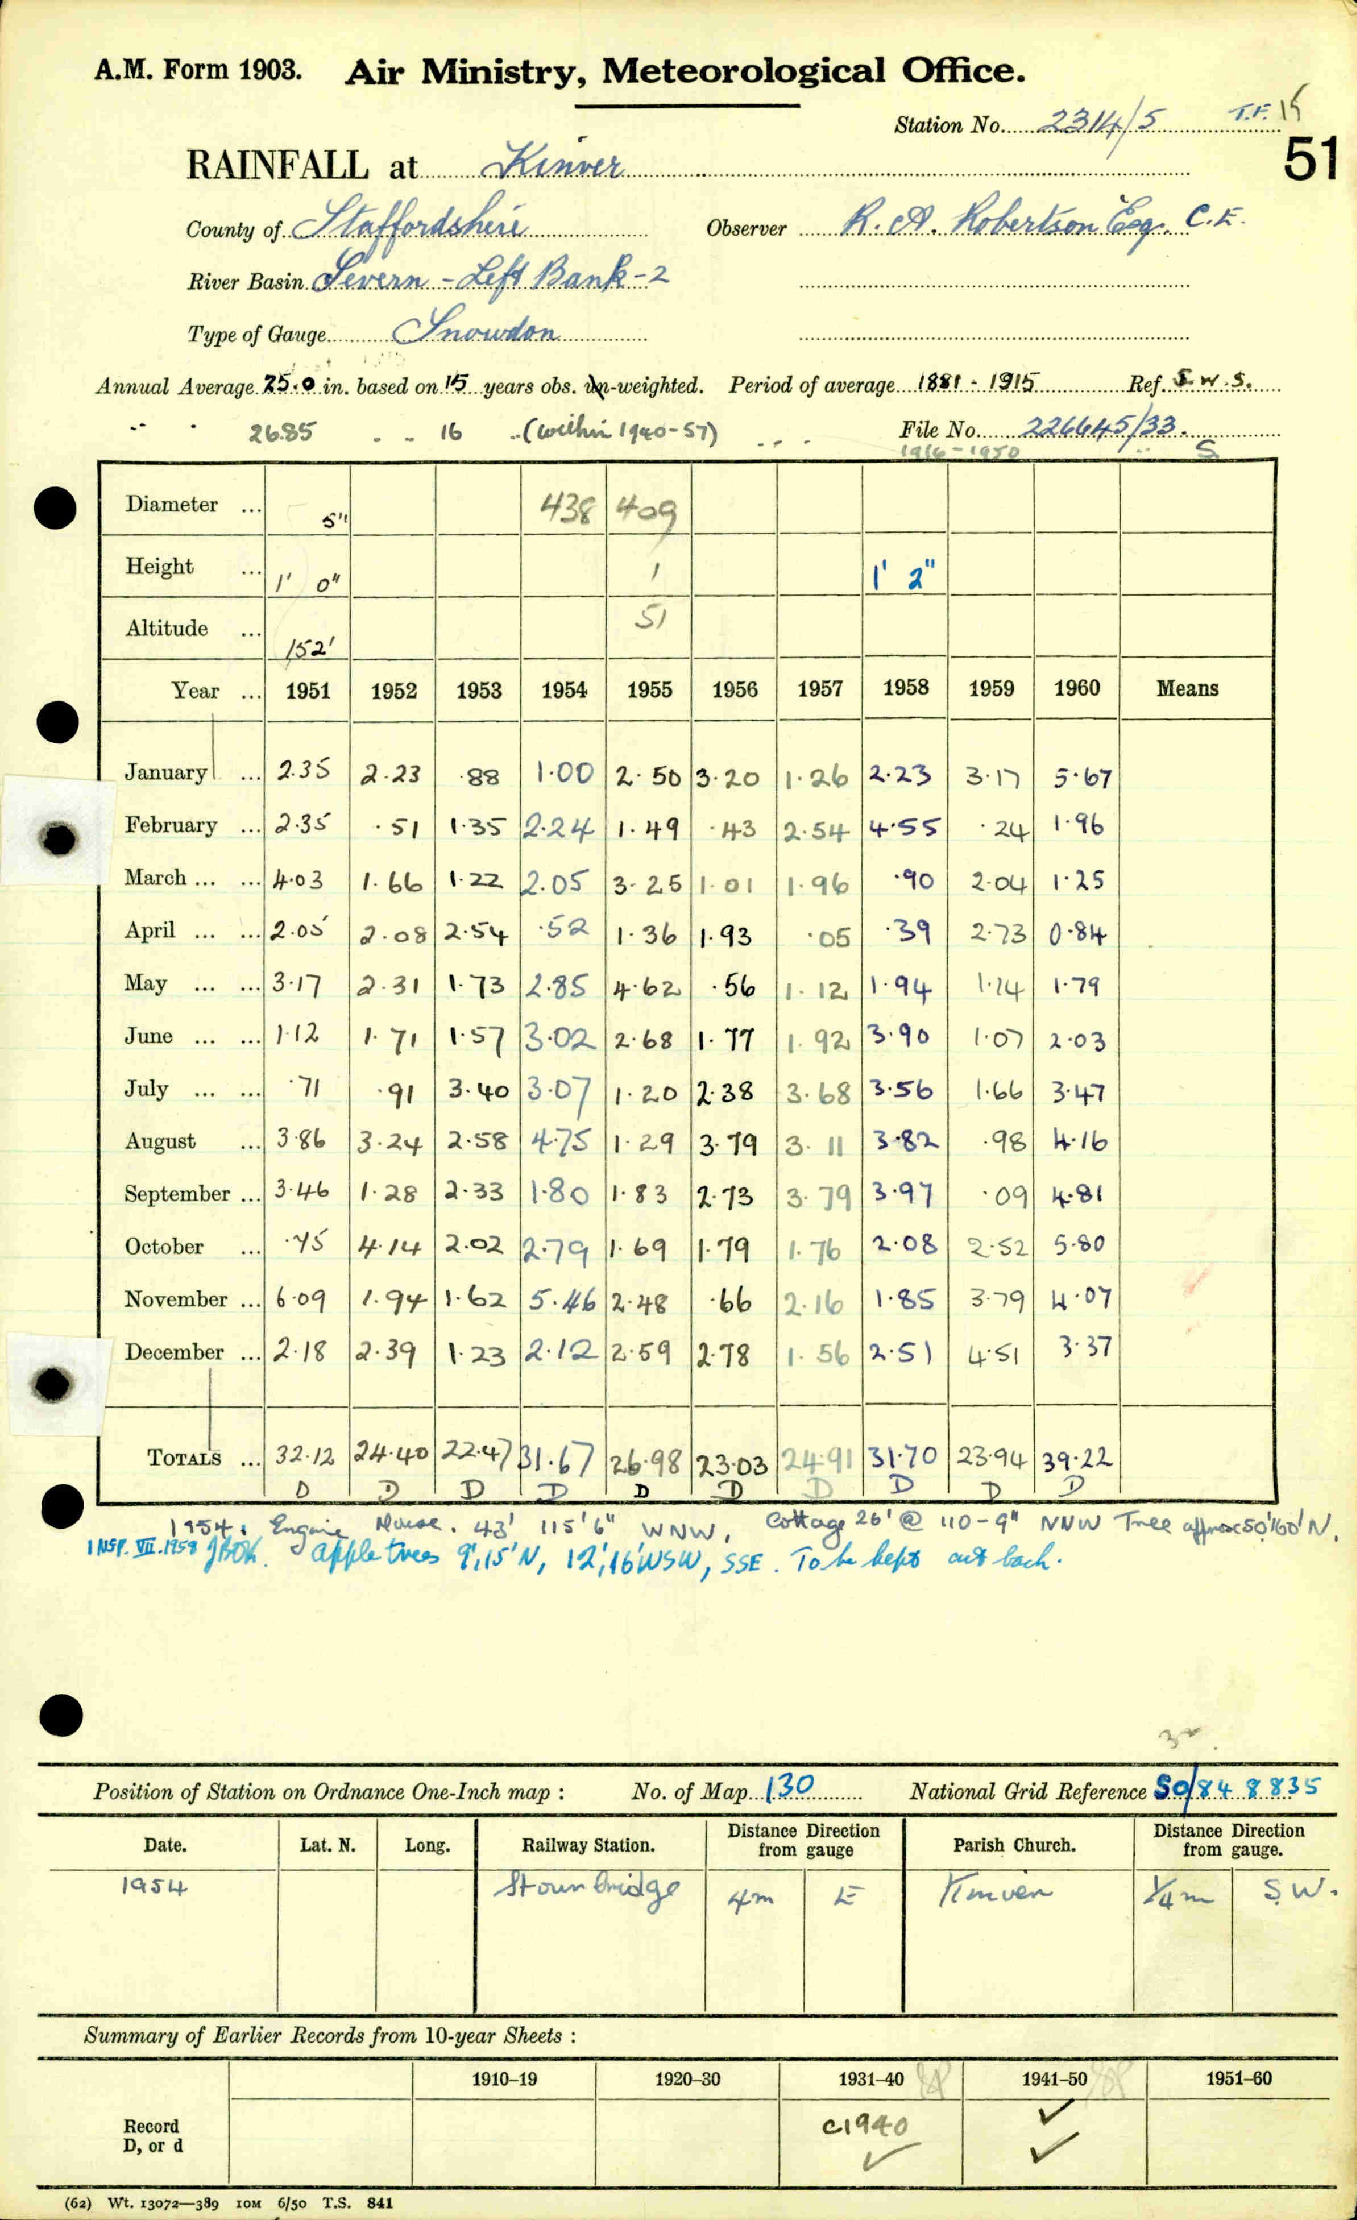 A.M. Form 1903. Air Ministry, Meteorological Office.
Station No. 2314/5 T.F. 15
51
RAINFALL at Kinver
County of Staffordshire Observer R. A. Robertson Esq. C.E.
River Basin Severn - Left Bank - 2
Type of Gauge Snowdon
Annual Average 25.0 in. based on 15 years obs. un-weighted. Period of average 1881 - 1915 Ref. S.W.S.
" " 26.85 " " 16 " (within 1940-57) File No. 226645/33.
1916-1950 S
Diameter ... 5" 438 409
Height ... 1' 0" 1 1' 2"
Altitude ... 152' 51
Year ... 1951 1952 1953 1954 1955 1956 1957 1958 1959 1960 Means
January ... 2.35 2.23 .88 1.00 2.50 3.20 1.26 2.23 3.17 5.67
February ... 2.35 .51 1.35 2.24 1.49 .43 2.54 4.55 .24 1.96
March ... ... 4.03 1.66 1.22 2.05 3.25 1.01 1.96 .90 2.04 1.25
April ... ... 2.05 2.08 2.54 .52 1.36 1.93 .05 .39 2.73 0.84
May ... ... 3.17 2.31 1.73 2.85 4.62 .56 1.12 1.94 1.14 1.79
June ... ... 1.12 1.71 1.57 3.02 2.68 1.77 1.92 3.90 1.07 2.03
July ... ... .71 .91 3.40 3.07 1.20 2.38 3.68 3.56 1.66 3.47
August ... 3.86 3.24 2.58 4.75 1.29 3.79 3.11 3.82 .98 4.16
September ... 3.46 1.28 2.33 1.80 1.83 2.73 3.79 3.97 .09 4.81
October ... .75 4.14 2.02 2.79 1.69 1.79 1.76 2.08 2.52 5.80
November ... 6.09 1.94 1.62 5.46 2.48 .66 2.16 1.85 3.79 4.07
December ... 2.18 2.39 1.23 2.12 2.59 2.78 1.56 2.51 4.51 3.37
TOTALS ... 32.12 24.40 22.47 31.67 26.98 23.03 24.91 31.70 23.94 39.22
D D D D D D D D D D
1954. Engine House. 43' 115'6" WNW, Cottage 26' @ 110-9" NNW Tree approx 50' 160' N.
INSP. VII.1958 Apple trees 9', 15' N, 12', 16' WSW, SSE. To be kept cut back.
Position of Station on Ordnance One-Inch map : No. of Map 130 National Grid Reference SO/848835
Date. Lat. N. Long. Railway Station. Distance Direction from gauge Parish Church. Distance Direction from gauge.
1954 Stourbridge 4m E Kinver 1/4m S.W.
Summary of Earlier Records from 10-year Sheets :
1910–19 1920–30 1931–40 1941–50 1951–60
Record D, or d c1940 ✓ ✓ ✓
(62) Wt. 13072—389 10M 6/50 T.S. 841